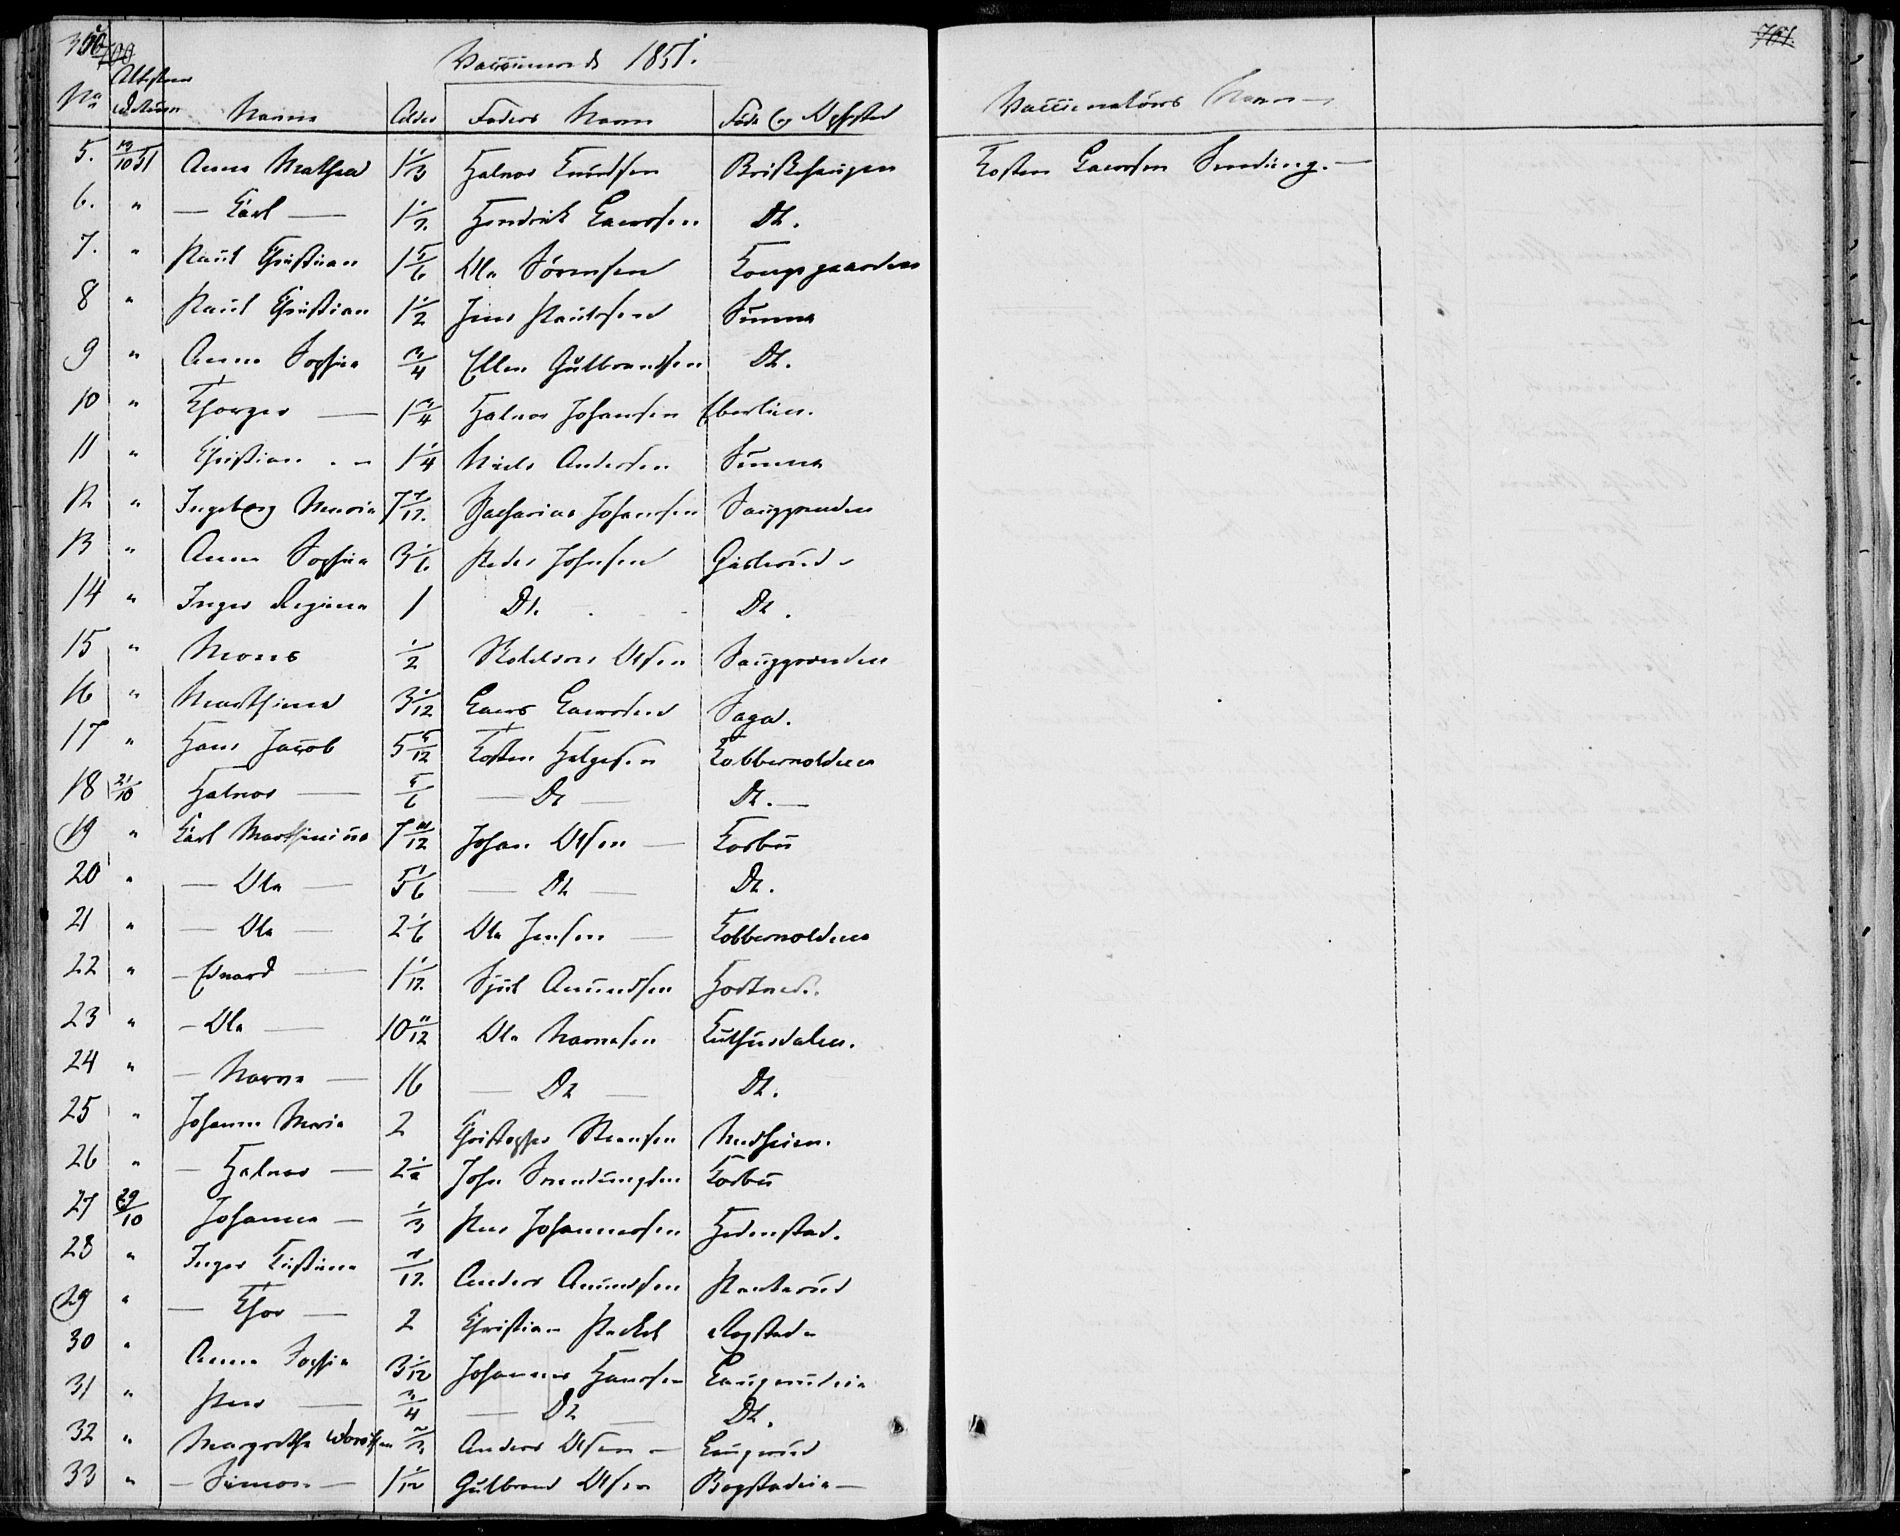 Vaccinerede 1851.
No Attestens Datum Navne Alder Faders Navn Føde og Opfstd Vaccinateurs Navn
5. 13/10 51 Anne Mathea 1 1/3 Halvor Knudsen Briskehaugen Tosten Larssen Svendung. —
6. " — Carl — 1 1/2 Hendrik Larssen Do.
7. " Paul Christian 1 5/6 Ole Sörensen Kongsgaarden
8 " Paul Christian 1 1/2 Jens Paulsen Summa
9 " Anne Sophie 3/4 Ellen Gulbrandsen Do.
10 " Thorger — 1 3/4 Halvor Johansen Eberlien.
11 " Christian 1 1/4 Niels Andersen Summa
12 " Ingeborg Maria 7 7/12 Zacharias Johansen Sauggrenden
13 " Anne Sophie 3 1/6 Peder Johnsen
14 " Inger Regine 1 Do. Do.
15 " Mons 1/2 Olsen Sauggrenden
16 " Marthine 3 1/12 Lars Larssen Saga.
17 " Hans Jacob 5 5/12 Tosten Helgesen Kobbervolden
18 21/10 Halvor — 5/6 — Do — Do. —
19 " Carl Marthinius 7 11/12 Johan Olsen — Korbu
20 " — Ole — 5 1/6 — Do — Do.
21 " — Ole — 2 1/6 Ole Jensen — Kobbervolden
22 " — Edvard — 1 1/12 Sjul Amundsen
23 " — Ole — 10 11/12 Ole Narvesen Luthusdalen.
24 " — Narve — 16 — Do — Do.
25 " Johanne Maria 2 Christopher Steensen Medheien.
26 " — Halvor — 2 1/2 John Svendungsen Korbu
27 29/10 Johannes — 1/3 Peer Johannessen Hedenstad.
28 " Inger Kirstine 7/12 Anders Amundsen
29 " — Thor — 2 Christian Pickel Rogstad
30 " Anne Sophie 3 1/12 Johannes Hansen Langerudeie
31 " Peer — 3/4 — Do — Do.
32 " Margrethe Dorothea 2/3 Anders Olsen — Langerud
33 " — Simon — 1 1/12 Gulbrand Olsen Bogstadeie —